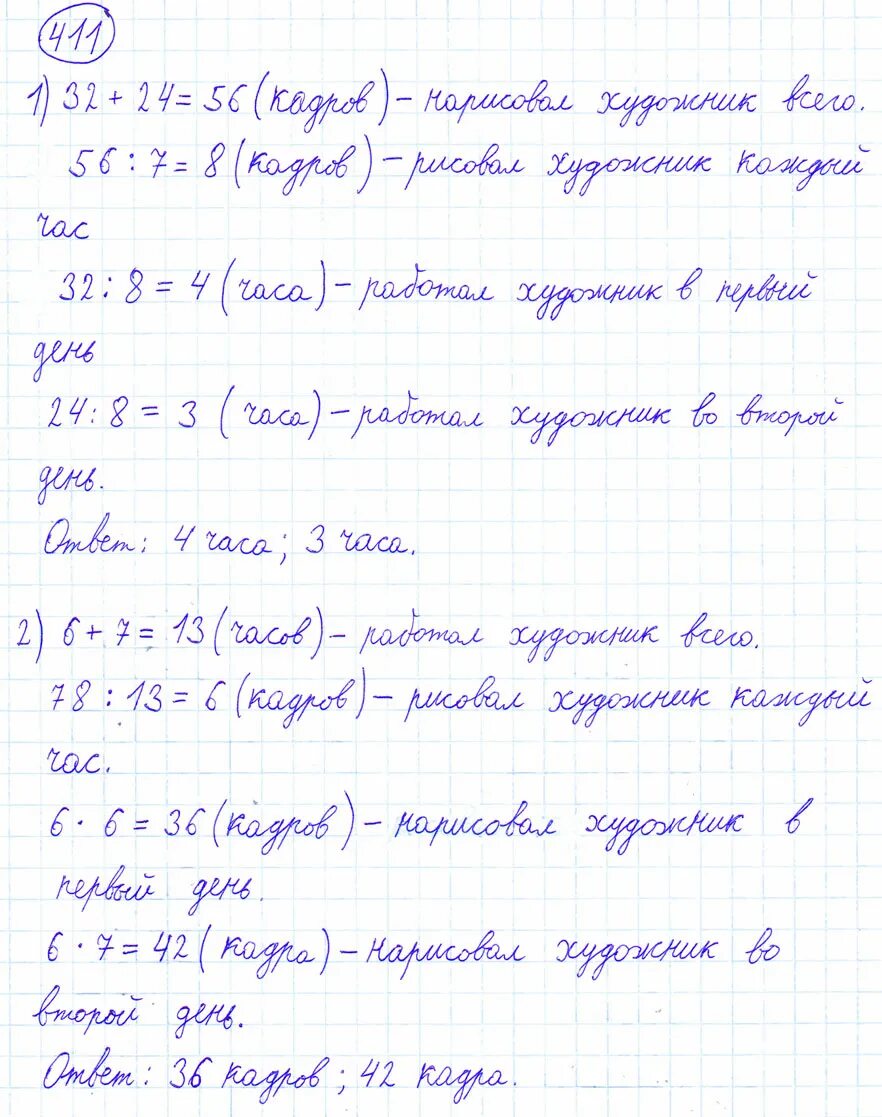 411
1) 32 + 24 = 56 (кадров) – нарисовал художник всего.
56 : 7 = 8 (кадров) – рисовал художник каждый
час
32 : 8 = 4 (часа) – работал художник в первый
день
24 : 8 = 3 (часа) – работал художник во второй
день.
Ответ: 4 часа; 3 часа.
2) 6 + 7 = 13 (часов) – работал художник всего.
78 : 13 = 6 (кадров) – рисовал художник каждый
час.
6 · 6 = 36 (кадров) – нарисовал художник в
первый день.
6 · 7 = 42 (кадра) – нарисовал художник во
второй день.
Ответ: 36 кадров; 42 кадра.